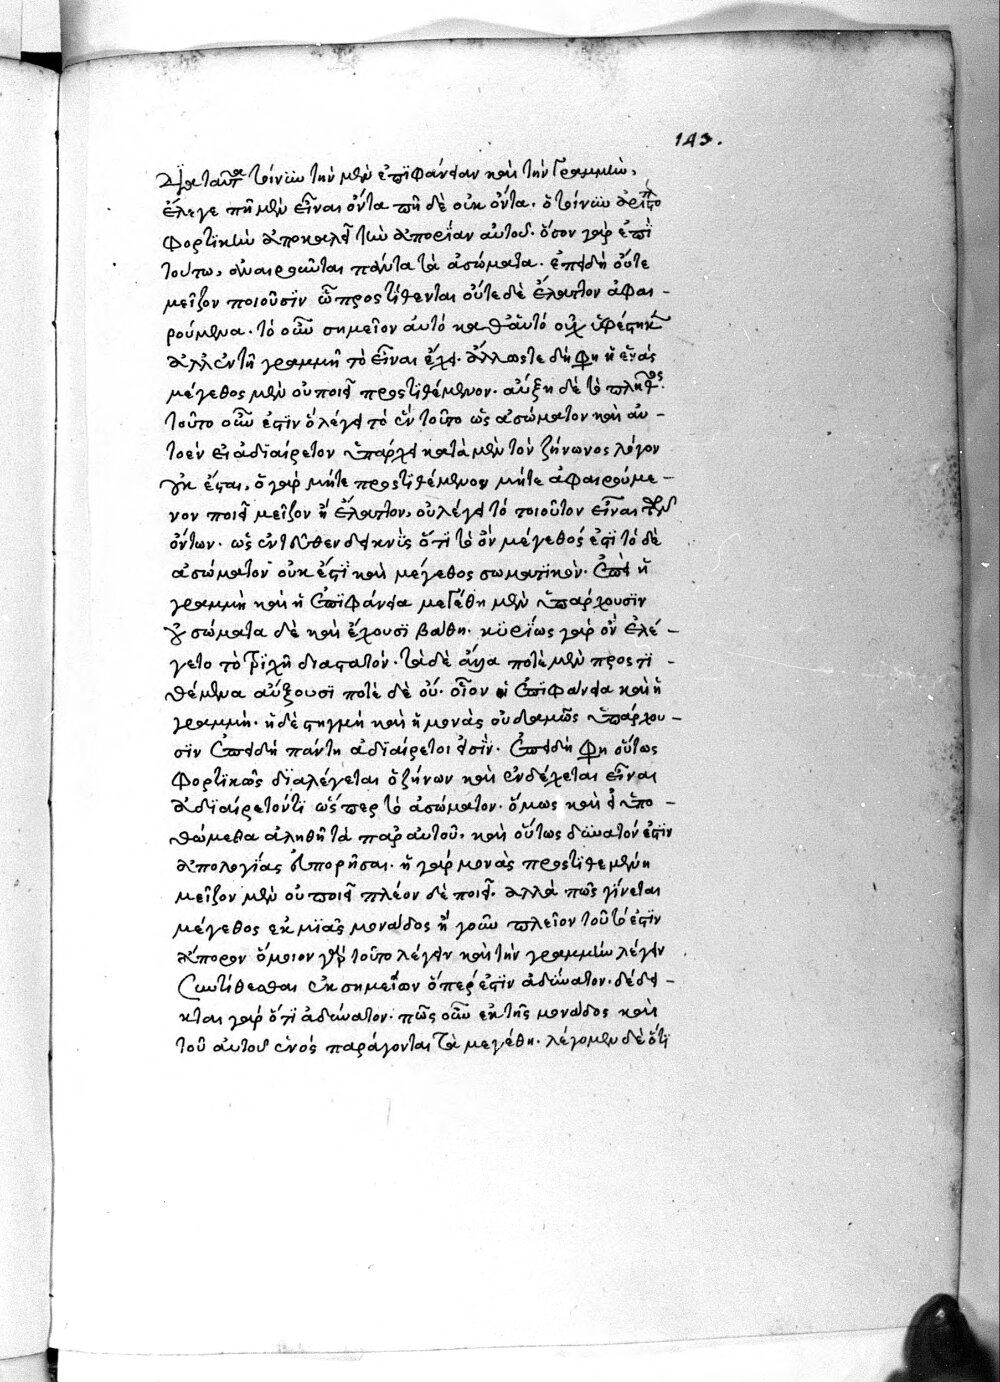 143.
διὰ ταῦτα τοίνυν τὴν μὲν ἐπιφάνειαν καὶ τὴν γραμμὴν,
ἔλεγε πῆ μὲν εἶναι ὄντα πῆ δὲ οὐκ ὄντα. ὁ τοίνυν ἀριστο
φορτικὴν ἀποκαλεῖ τὴν ἀπορίαν αὐτοῦ. ὅσον γὰρ ἐπὶ
τούτω, ἀναιροῦνται πάντα τὰ ἀσώματα. ἐπειδὴ οὔτε
μεῖζον ποιοῦσιν ὧ προστίθενται οὔτε δὲ ἔλαττον ἀφαι -
ρούμενα. τὸ οὖν σημεῖον αὐτὸ καθ' αὑτὸ οὐχ ὑφέστηκεν
ἀλλ' ἐν τῆ γραμμῆ τὸ εἶναι ἔχει. ἄλλως τε δή φη ἡ ἑνὰς
μέγεθος μὲν οὐ ποιεῖ προστιθέμενον. αὔξη δὲ τὸ πλῆθος.
τοῦτο οὖν ἐστιν ὃ λέγει τὸ ἓν τοῦτο ὡς ἀσώματον καὶ αὐ -
τοὲν εἰ ἀδιαίρετον ὑπάρχει κατὰ μὲν τὸν ζήνωνος λόγον
οὐκ ἔσται. ὃ γὰρ μήτε προστιθέμενον μήτε ἀφαιρούμε -
νον ποιεῖ μεῖζον ἢ ἔλαττον, οὐ λέγει τὸ τοιοῦτον εἶναι τῶν
ὄντων. ὡς ἐντεῦθεν δεικνὺς ὅτι τὸ ὂν μέγεθός ἐστι τὸ δὲ
ἀσώματον οὐκ ἔστι καὶ μέγεθος σωματικόν. ἐπεὶ ἡ
γραμμὴ καὶ ἡ ἐπιφάνεια μεγέθη μὲν ὑπάρχουσιν
οὐ σώματα δὲ καὶ ἔχουσι βάθη. κυρίως γὰρ ὂν ἐλέ -
γετο τὸ τριχῆ διαστατόν. τὰ δὲ ἄλλα ποτὲ μὲν προστι -
θέμενα αὔξουσι ποτὲ δὲ οὔ. οἷον ἡ ἐπιφάνεια καὶ ἡ
γραμμή. ἡ δὲ στιγμὴ καὶ ἡ μονὰς οὐδαμῶς ὑπάρχου -
σιν ἐπειδὴ πάντη ἀδιαίρετοι εἰσίν. ἐπειδή φη οὕτως
φορτικῶς διαλέγεται ὁ ζήνων καὶ ἐνδέχεται εἶναι
ἀδιαίρετόν τι ὥσπερ τὸ ἀσώματον. ὅμως καὶ εἰ ὑπο -
θώμεθα ἀληθῆ τὰ παρ' αὐτοῦ. καὶ οὕτως δυνατόν ἐστιν
ἀπολογίας εὐπορῆσαι. ἡ γὰρ μονὰς προστιθεμένη
μεῖζον μὲν οὐ ποιεῖ πλέον δὲ ποιεῖ. ἀλλὰ πῶς γίνεται
μέγεθος ἐκ μιᾶς μονάδος ἢ γοῦν πλεῖον τοῦτό ἐστιν
ἄπορον ὅμοιον γὰρ τοῦτο λέγειν καὶ τὴν γραμμὴν λέγειν
συντίθεσθαι ἐκ σημείων ὅπερ ἐστὶν ἀδύνατον. δέδει -
κται γὰρ ὅτι ἀδύνατον. πῶς οὖν ἐκ τῆς μονάδος καὶ
τοῦ αὐτοῦ ἑνὸς παράγονται τὰ μεγέθη. λέγομεν δὲ ὅτι